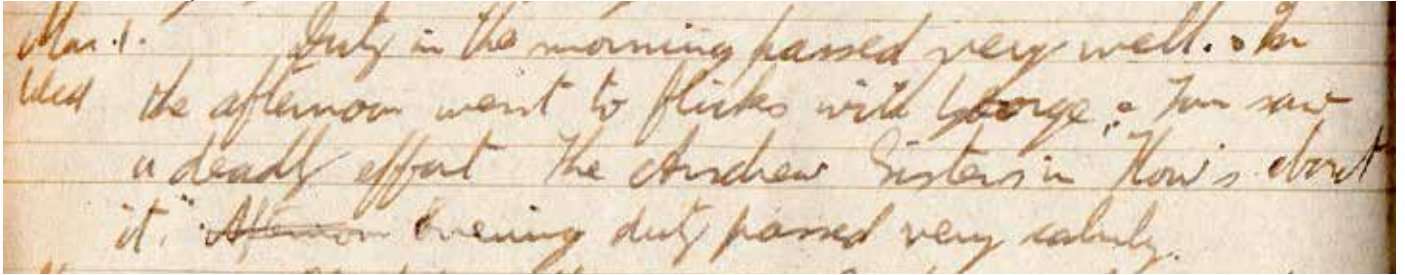 Mar. 1. Duty in the morning passed very well. In
Wed the afternoon went to flicks with George & Tom saw
a deadly effort The Andrew Sisters in "How's about
it." Afternoon Evening duty passed very calmly.